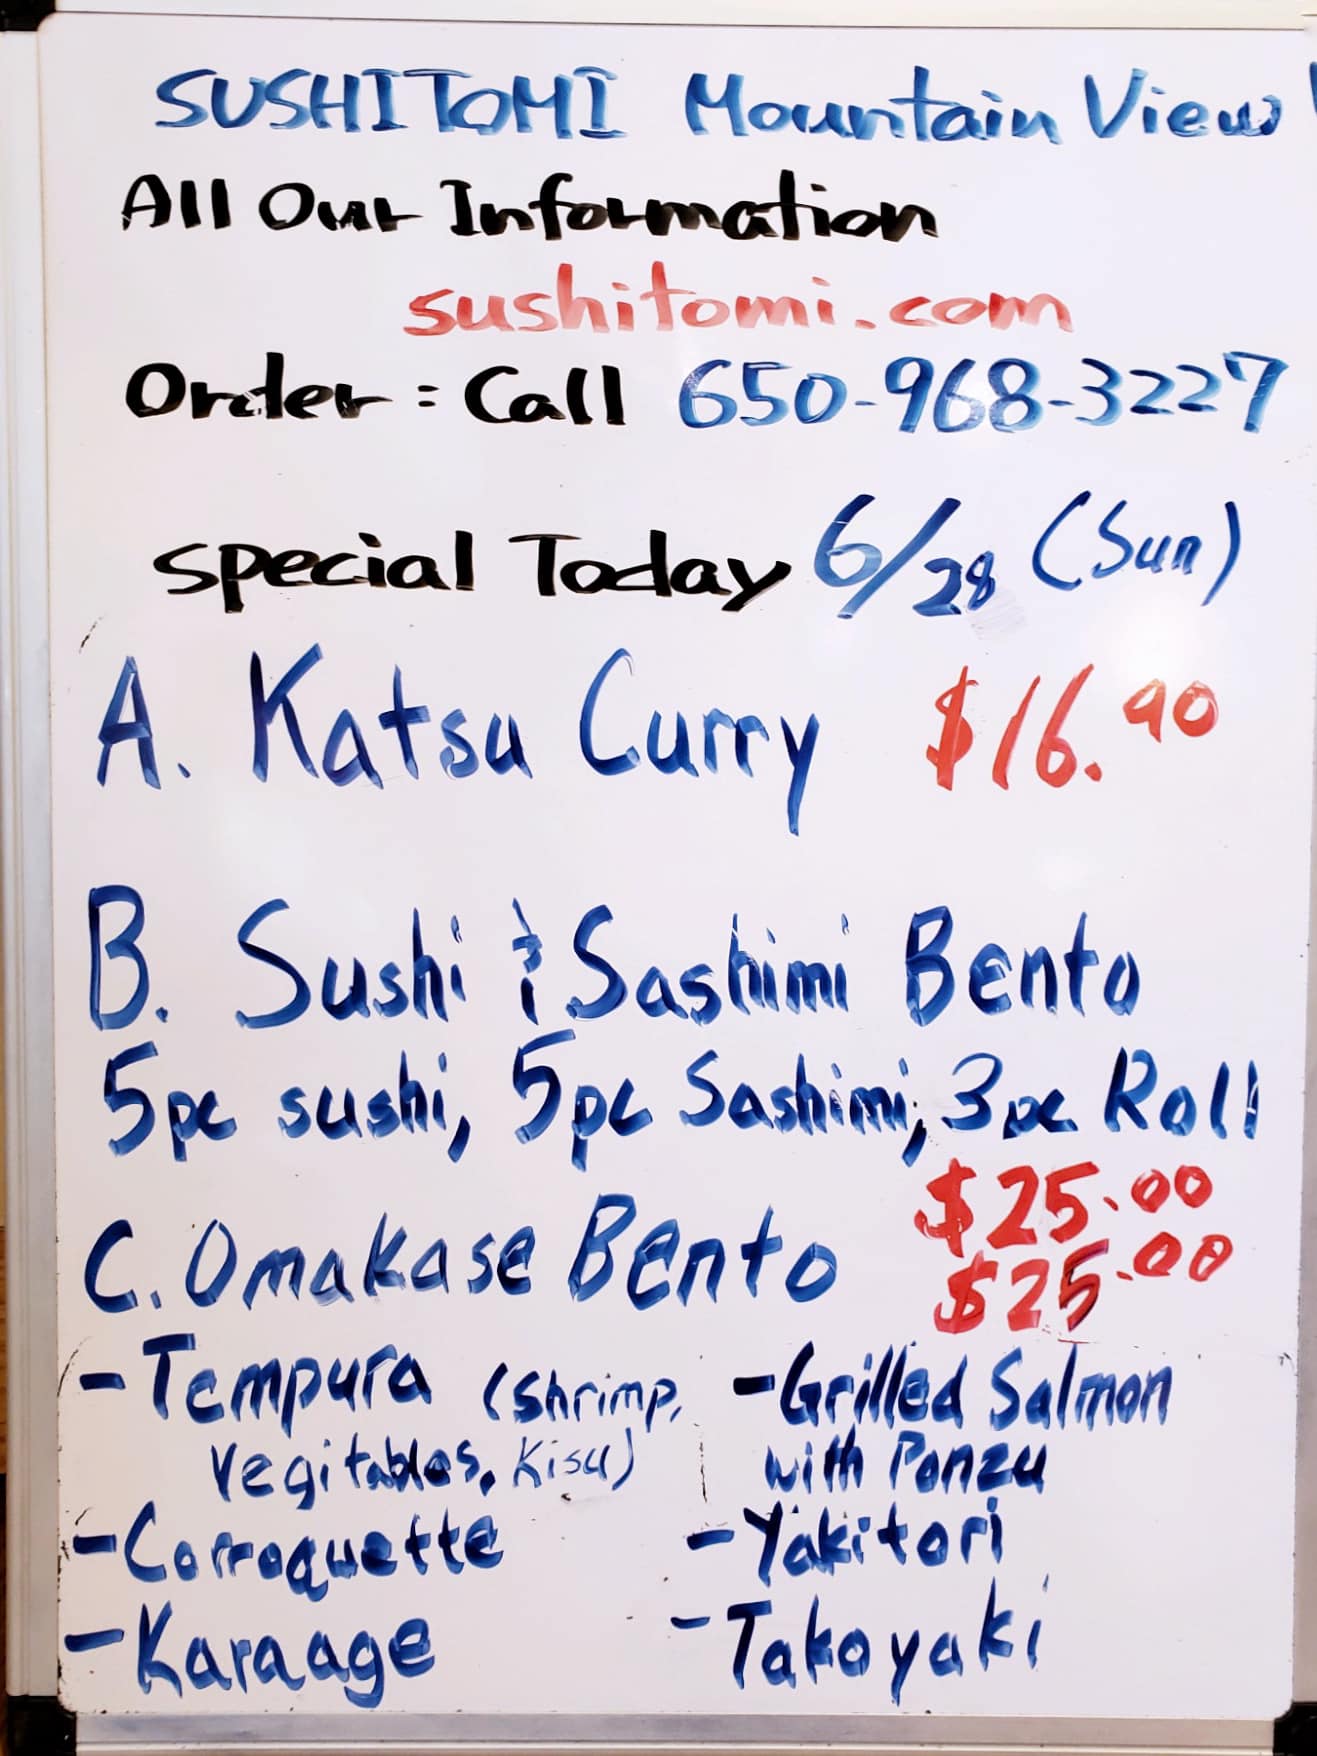 SUSHITOMI Mountain View
All Our Information
sushitomi.com
Order : Call 650-968-3227
Special Today 6/28 (Sun)
A. Katsu Curry $16.90
B. Sushi & Sashimi Bento
5pc sushi, 5pc Sashimi, 3pc Roll
$25.00
C. Omakase Bento $25.00
- Tempura (Shrimp,
Vegitables, Kisu)
- Grilled Salmon
with Ponzu
- Corroquette
- Yakitori
- Karaage
- Takoyaki